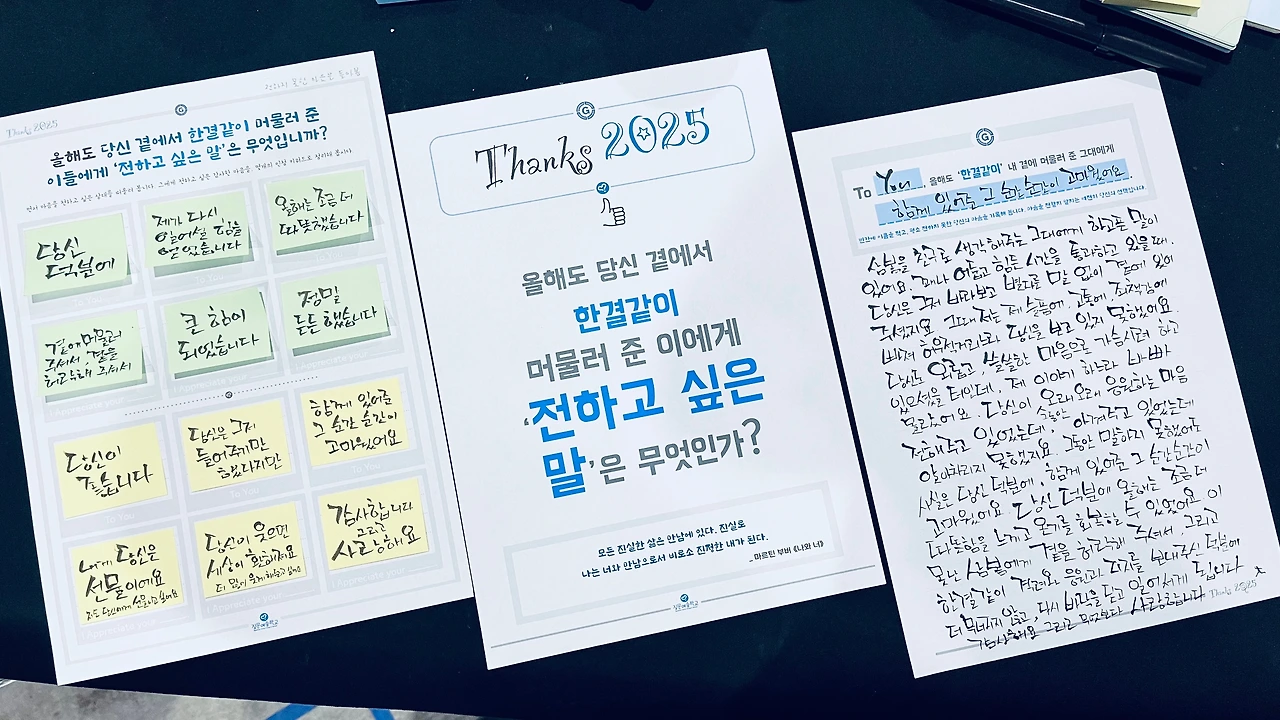 Thanks 2025
올해도 당신 곁에서 한결같이 머물러 준
이들에게 '전하고 싶은 말'은 무엇입니까?
당신
덕분에
제가 다시
일어설 힘을
얻었습니다
올해는 조금 더
따뜻했습니다
곁에 머물러
주셔서, 곁을
허락해 주셔서
큰 힘이
되었습니다
정말
든든했습니다
당신이
좋습니다
당신은 그저
들어주기만
했다지만
함께 있어준
그 순간 순간이
고마웠어요
나에게 당신은
선물이에요
당신이 웃으면
세상이 환해져요
감사합니다
그리고
사랑해요
To You
I Appreciate your
질문예술학교
G
Thanks 2025
올해도 당신 곁에서
한결같이
머물러 준 이에게
'전하고 싶은
말'은 무엇인가?
모든 진실한 삶은 만남에 있다. 진실로
나는 너와 만남으로서 비로소 진정한 내가 된다.
_마르틴 부버 《나와 너》
질문예술학교
G
To You, 올해도 '한결같이' 내 곁에 머물러 준 그대에게
함께 있어준 그 순간 순간이 고마웠어요.
삼벌을 친구로 생각해주는 그대에게 하고픈 말이
있어요. 제가 어렵고 힘든 시간을 통과하고 있을 때,
당신은 그저 바라보고 별다른 말 없이 곁에 있어
주셨지요. 그때 저는 제 슬픔에, 고통에, 죄책감에
빠져 허우적거리느라 당신을 보고 있지 못했어요.
당신도 힘들고 쌀쌀한 마음으로 가슴시려 하고
있으셨을 터인데, 제 이야기 하느라 바빠
몰랐어요. 당신이 오래오래 응원하는 마음
전해주고 있었는데 아껴주고 있었는데
알아차리지 못했지요. 그동안 말하지 못했어도
사실은 당신 덕분에, 함께 있어준 그 순간순간이
고마웠어요. 당신 덕분에 올해는 조금 더
따뜻함을 느끼고 온기를 회복할 수 있었어요. 이
못난 삼벌에게 곁을 허락해 주셔서, 그리고
한결같이 격려와 응원과 지지를 보내주신 덕분에
더 무너지지 않고, 다시 바닥을 딛고 일어서게 됩니다
감사해요 그리고 무엇보다 사랑합니다
Thanks 2025